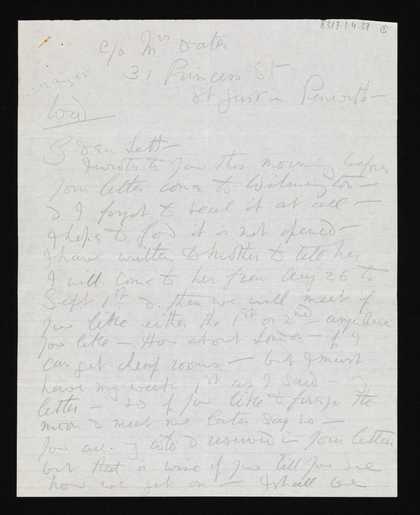 8717.1.4.37
c/o Mrs Oates
31 Princess St
St Just in Penwith
Wed
Dear Sett
I wrote to you this morning before
your letter came to Wilmington
& I forgot to seal it at all
I hope to God it is not opened
I have written to Mother to tell her
I will come to her from Aug 26 to
Sept 1st & then we will meet if
you like either the 1st or 2nd anywhere
you like How about if I
can get cheap rooms but I must
have my week 1st as I said
letter So if you like to forgo the
moor & meet me later say so
You are cold & reserved in your letters
but that is wise if you till you see
how we get on I shall be